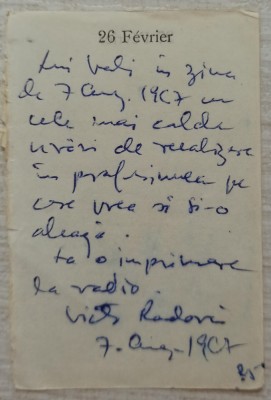 26 Février
Lui Vali în ziua
de 7 Aug. 1967 cu
cele mai calde
urări de realizare
în profesiunea pe
care vrea să și-o
aleagă.
La o imprimare
la radio.
Radovici
7. Aug. 1967